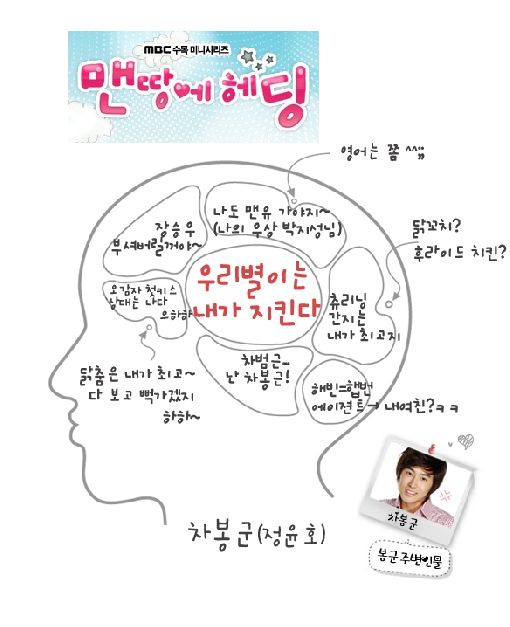 MBC 수목 미니시리즈
맨땅에 헤딩
영어는 쫌 ^^;;
장승우
부셔버릴꺼야~
나도 맨유 가야지~
(나의 우상 박지성님)
닭꼬치?
후라이드 치킨?
오감자 첫키스
상대는 나다
으하하
우리별이는
내가 지킨다
츄리닝
간지는
내가 최고지
닭춤은 내가 최고~
다 보고 뻑가겠지
하하~
차범근_
난 차봉근!
해빈=햅번
에이젼트→내여친?ㅋㅋ
차봉군(정윤호)
차봉군
봉군주변인물